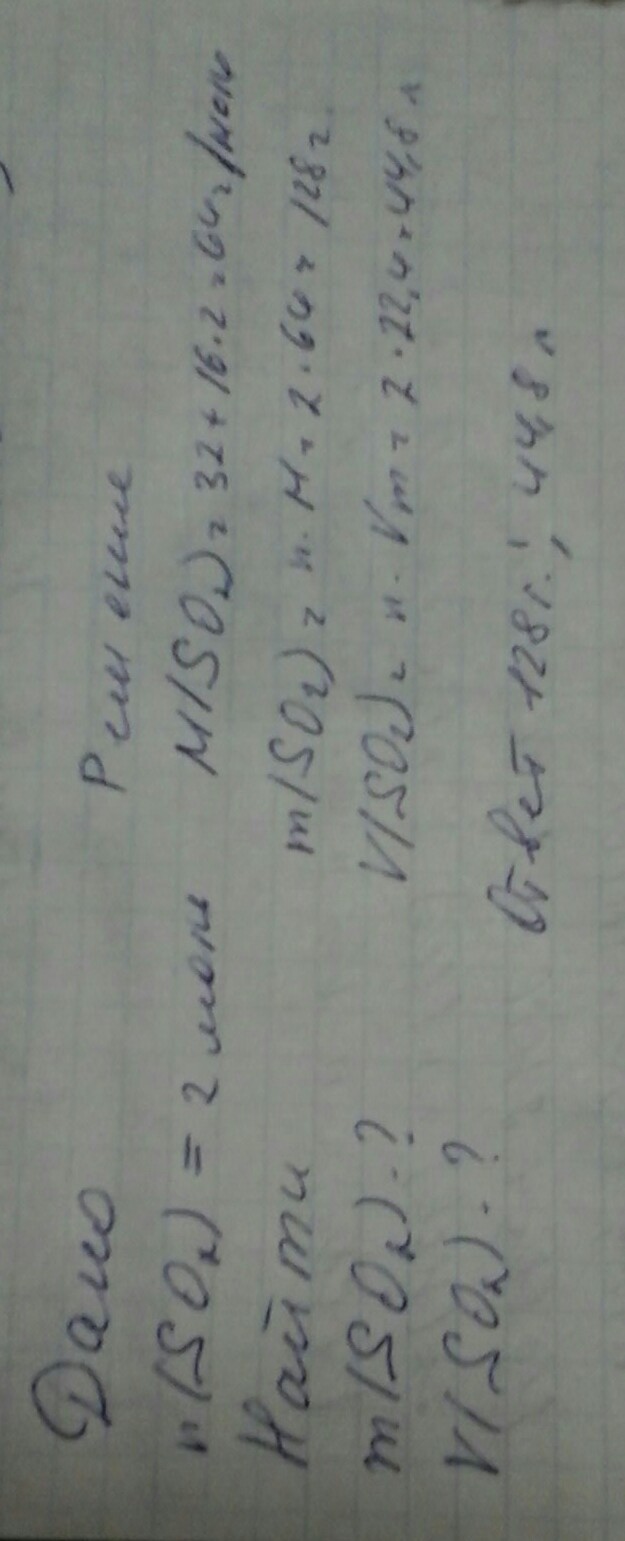 Дано
n(SO₂) = 2 моль
Найти
m(SO₂)-?
V(SO₂)-?
Решение
M(SO₂)=32+16·2=64г/моль
m(SO₂)=n·M=2·64=128г
V(SO₂)=n·Vm=2·22,4=44,8 л
Ответ 128г.; 44,8 л